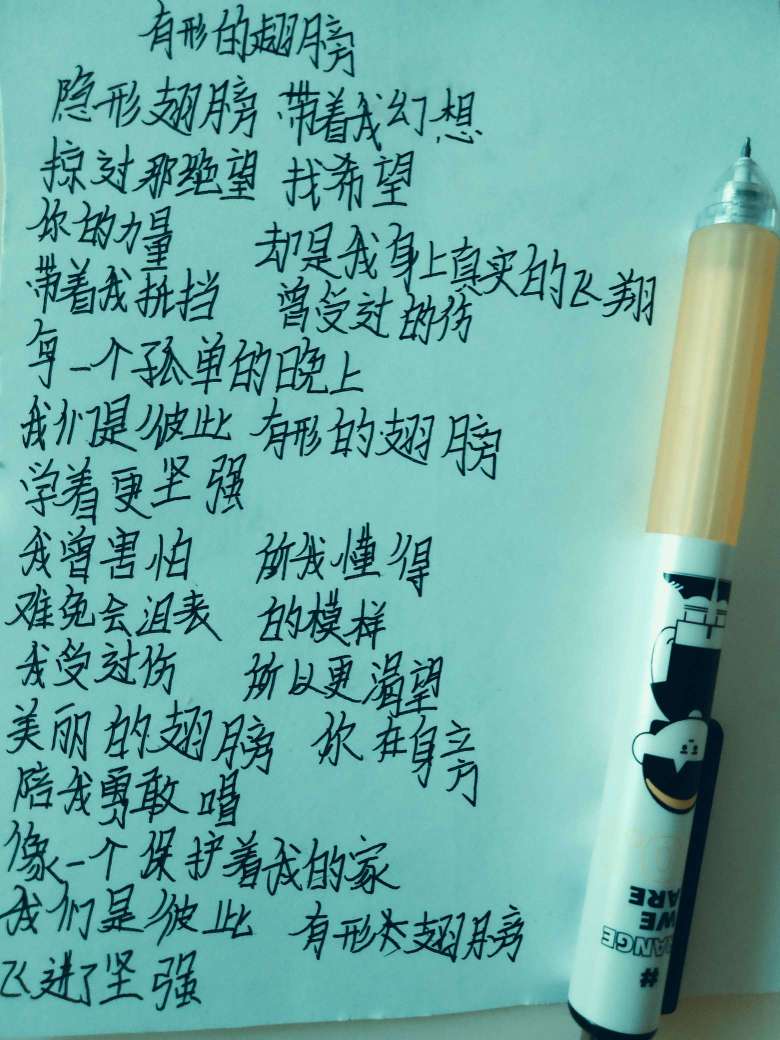 有形的翅膀
隐形翅膀 带着我幻想
掠过那绝望 找希望
你的力量 却是我身上真实的飞翔
带着我抵挡 曾受过的伤
每一个孤单的晚上
我们是彼此 有形的翅膀
学着更坚强
我曾害怕 所我懂得
难免会沮丧 的模样
我受过伤 所以更渴望
美丽的翅膀 你在身旁
陪我勇敢唱
像一个保护着我的家
我们是彼此 有形翅膀
飞进了坚强
#
RANGE
WE
ARE